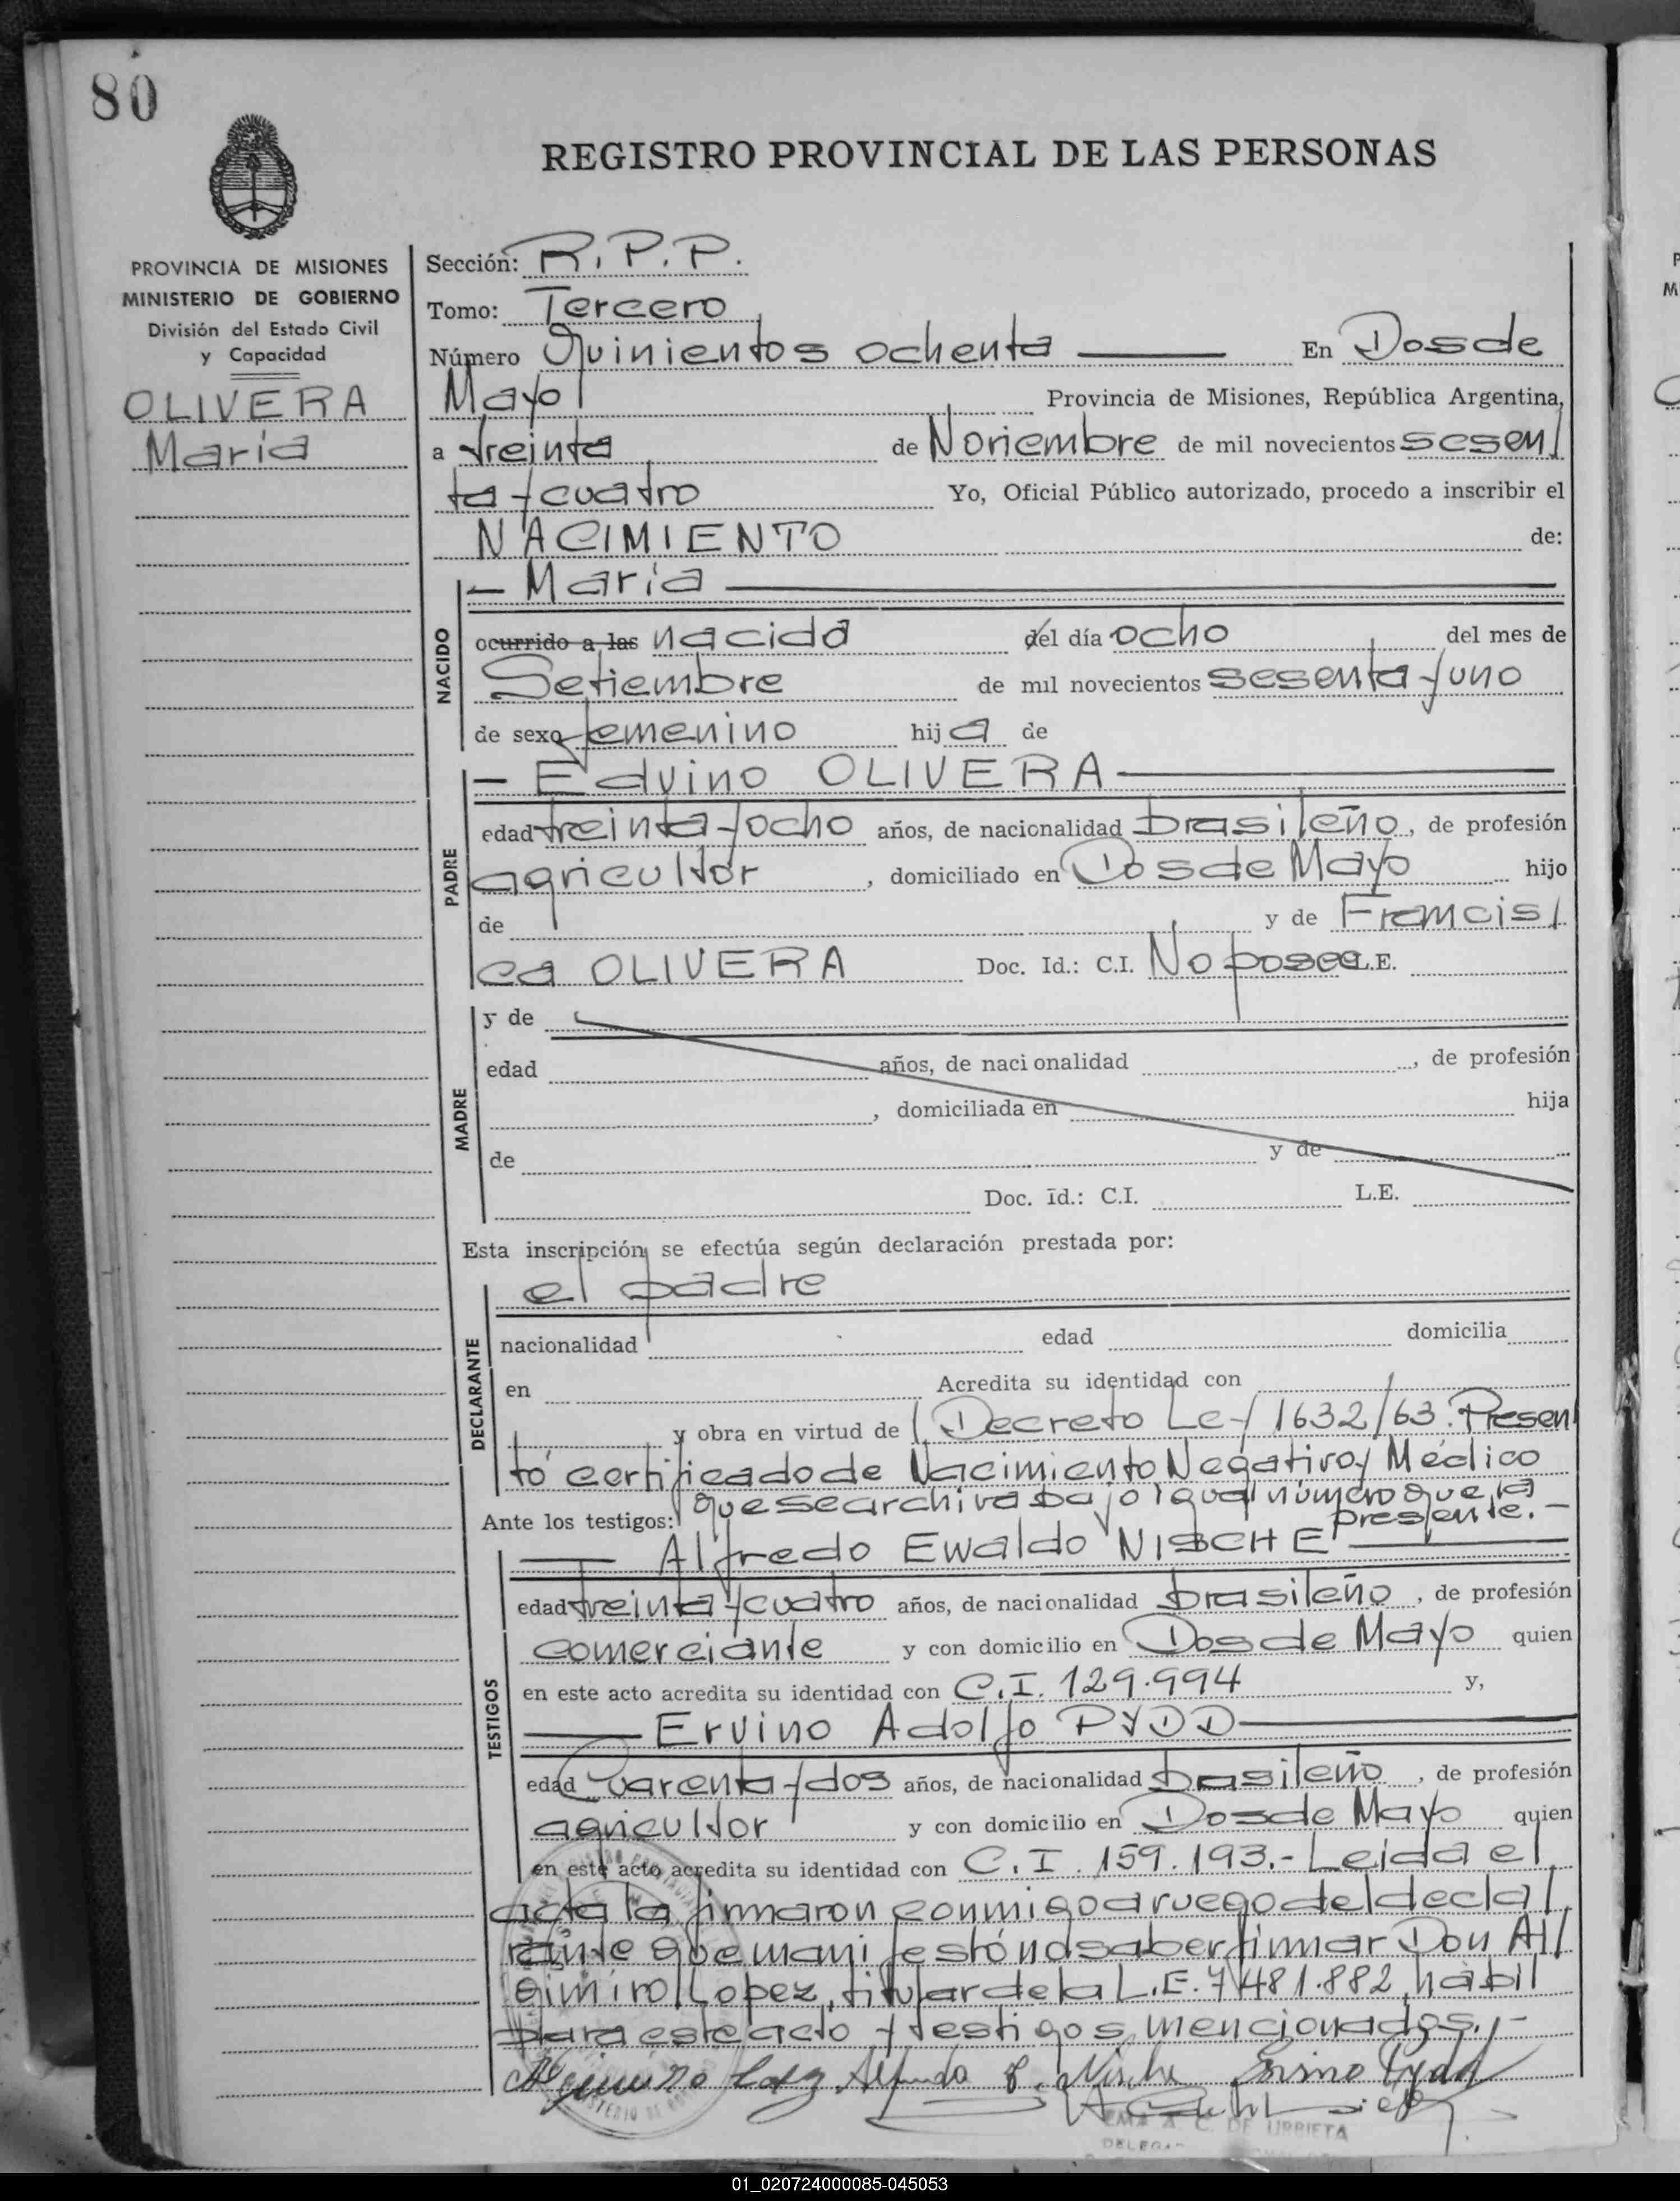 80
REGISTRO PROVINCIAL DE LAS PERSONAS
PROVINCIA DE MISIONES
MINISTERIO DE GOBIERNO
División del Estado Civil
y Capacidad
OLIVERA
María
Sección: R.P.P.
Tomo: Tercero
Número Quinientos ochenta En Dos de
Mayo Provincia de Misiones, República Argentina,
a treinta de Noviembre de mil novecientos sesen/
ta y cuatro Yo, Oficial Público autorizado, procedo a inscribir el
NACIMIENTO de:
NACIDO
- María
ocurrido a las nacida del día ocho del mes de
Setiembre de mil novecientos sesenta y uno
de sexo femenino hija de
PADRE
- Edvino OLIVERA
edad treinta y ocho años, de nacionalidad brasileño, de profesión
agricultor, domiciliado en Dos de Mayo hijo
de y de Francis/
ca OLIVERA Doc. Id.: C.I. No posee L.E.
MADRE
y de
edad años, de nacionalidad, de profesión
, domiciliada en hija
de y de
Doc. Id.: C.I. L.E.
Esta inscripción se efectúa según declaración prestada por:
DECLARANTE
el padre
nacionalidad edad domicilia
en Acredita su identidad con
y obra en virtud de Decreto Ley 1632/63. Presen
tó certificado de Nacimiento Negativo y Médico
que se archiva bajo igual número que la
presente.-
Ante los testigos:
TESTIGOS
Alfredo Ewaldo NISCHE
edad treinta y cuatro años, de nacionalidad brasileño, de profesión
comerciante y con domicilio en Dos de Mayo quien
en este acto acredita su identidad con C.I. 129.994 y,
Ervino Adolfo PYDD
edad Cuarenta y dos años, de nacionalidad brasileño, de profesión
agricultor y con domicilio en Dos de Mayo quien
en este acto acredita su identidad con C.I. 159.193.- Leída el
acta la firmaron conmigo a ruego del decla/
rante que manifestó no saber firmar Don Al/
gimiro Lopez, titular de la L.E. 7.481.882, habil
para este acto y testigos mencionados.-
Alfredo E. Nische Ervino Pydd
A. C. DE URRIETA
01_020724000085-045053